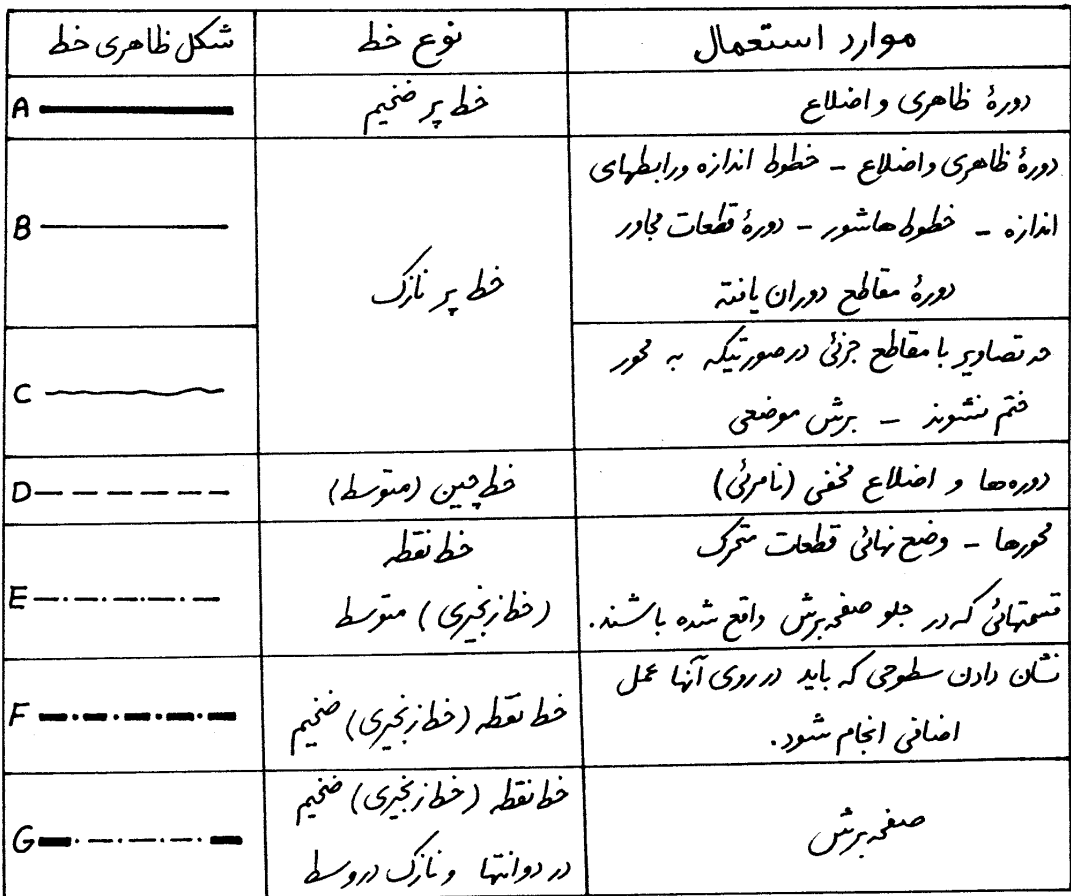 موارد استعمال
نوع خط
شکل ظاهری خط
دورهٔ ظاهری و اضلاع
خط پر ضخیم
A
دورهٔ ظاهری و اضلاع - خطوط اندازه و رابطهای
اندازه - خطوط هاشور - دورهٔ قطعات مجاور
دورهٔ مقاطع دوران یافته
خط پر نازک
B
در تصاویر با مقاطع جزئی درصورتیکه به محور
ختم نشوند - برش موضعی
C
دوره‌ها و اضلاع مخفی (نامرئی)
خط چین (متوسط)
D
محورها - وضع نهائی قطعات متحرک
قسمتهائی که در جلو صفحه برش واقع شده باشند.
خط نقطه
(خط زنجیری) متوسط
E
نشان دادن سطوحی که باید در روی آنها عمل
اضافی انجام شود.
خط نقطه (خط زنجیری) ضخیم
F
صفحه برش
خط نقطه (خط زنجیری) ضخیم
در دوانتها و نازک در وسط
G